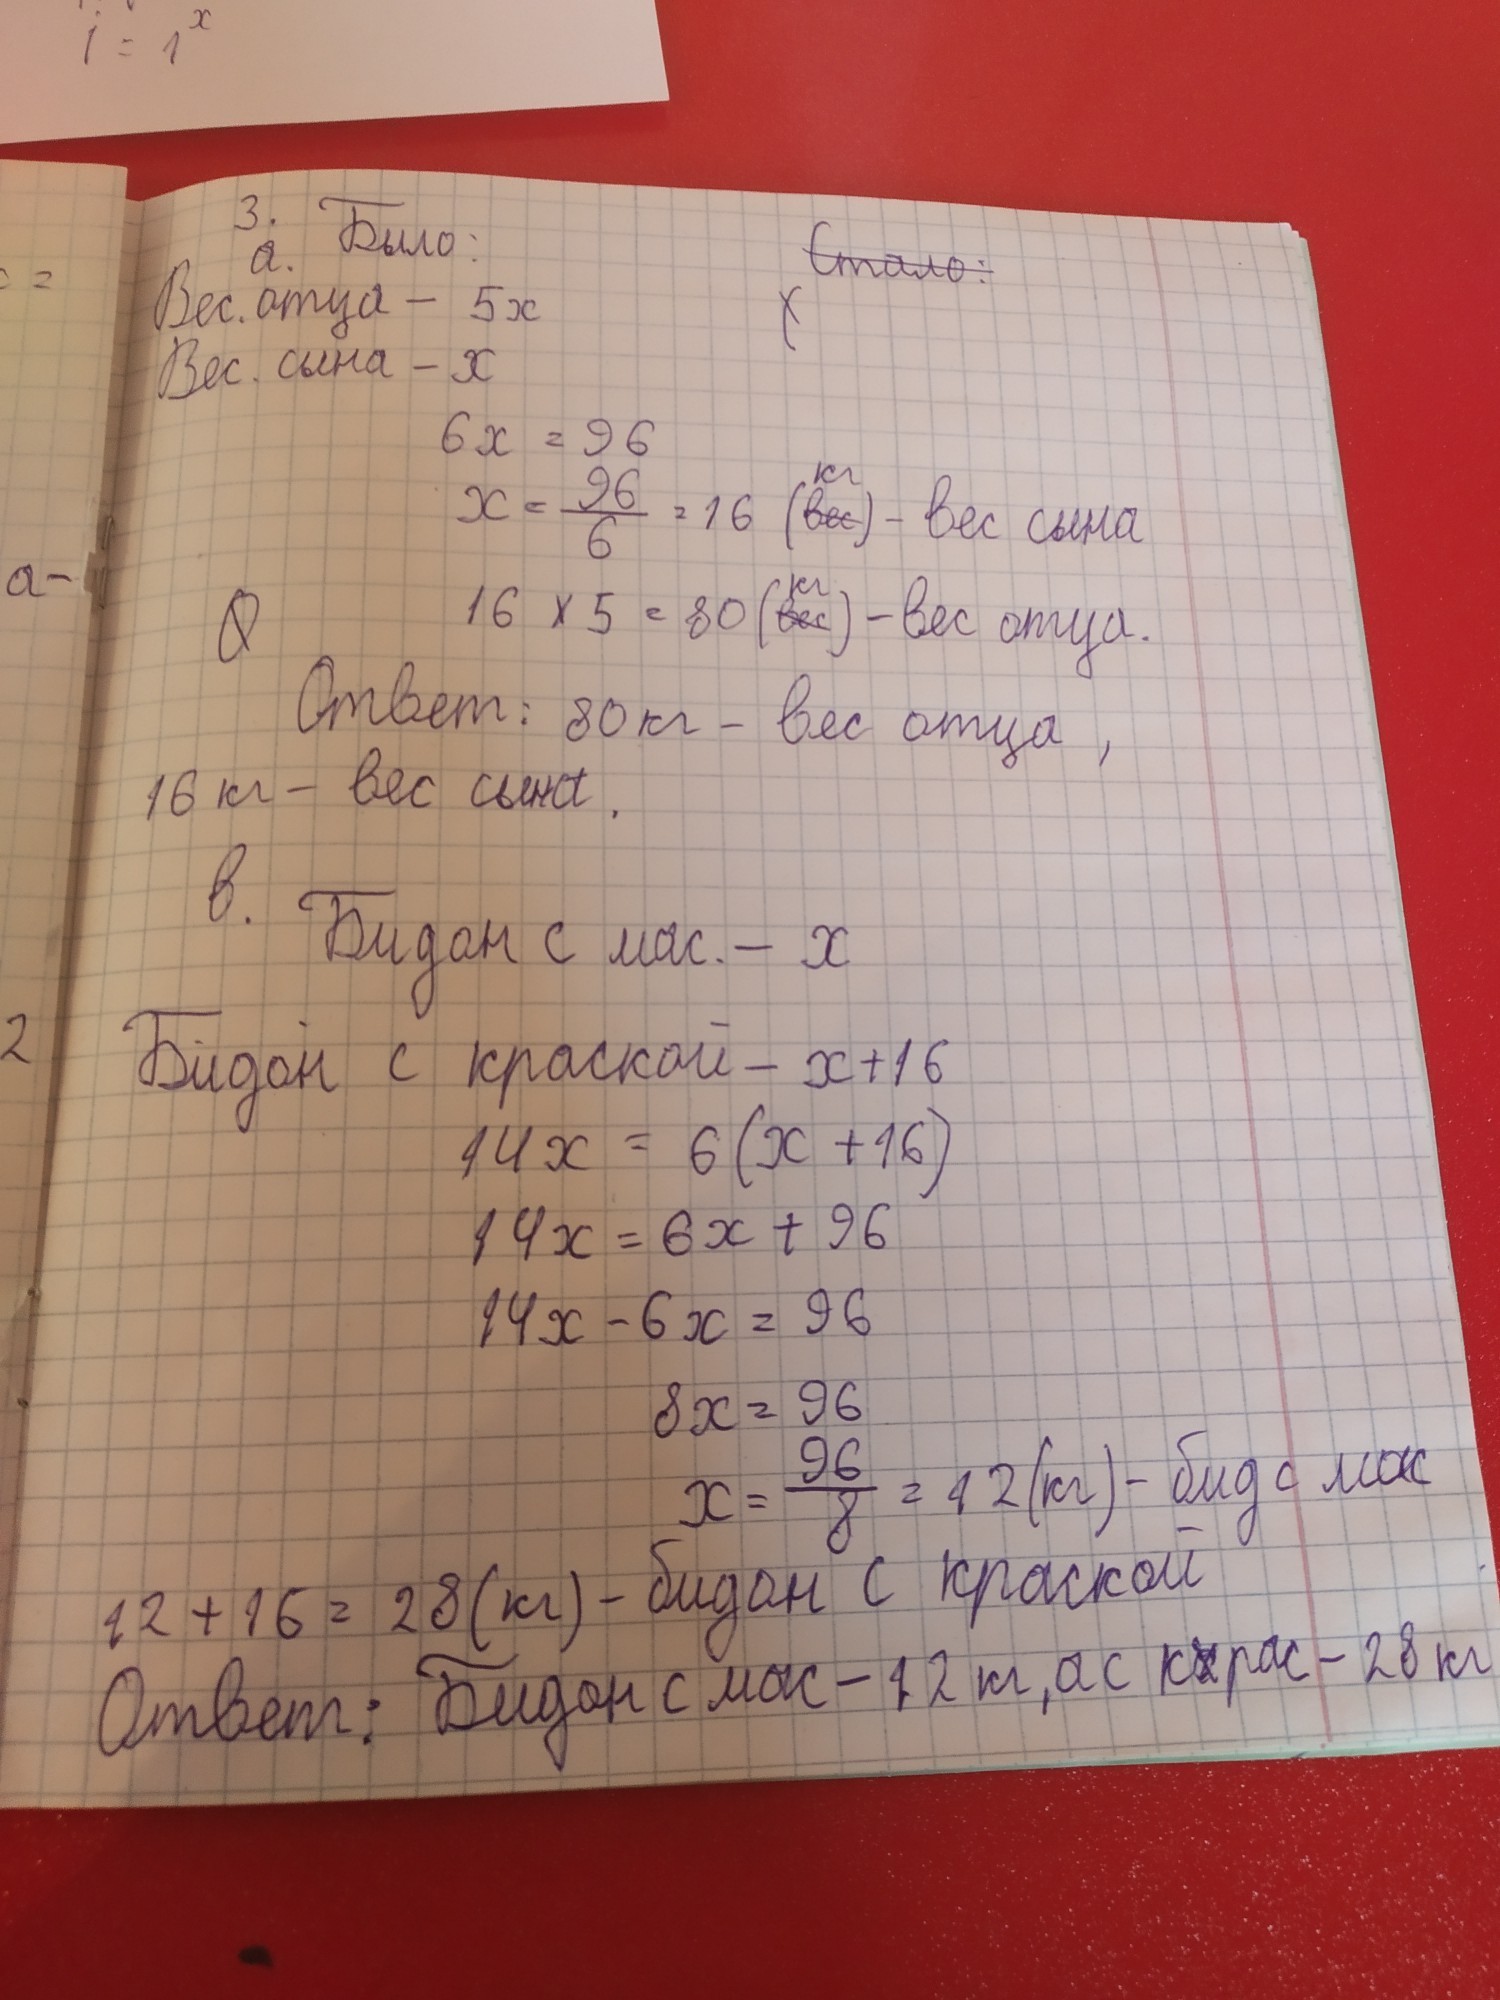 1 = 1ˣ
3.
а. Было: Стало:
Вес. отца – 5х
Вес. сына – х
6х = 96
х = 96/6 = 16 (вес) кг – вес сына
16 × 5 = 80 (вес) кг – вес отца.
Ответ: 80 кг – вес отца,
16 кг – вес сына.
в.
Бидон с мас. – х
Бидон с краской – х + 16
14х = 6(х + 16)
14х = 6х + 96
14х – 6х = 96
8х = 96
х = 96/8 = 12 (кг) – бид с мас
12 + 16 = 28 (кг) – бидон с краской
Ответ: Бидон с мас – 12 кг, а с крас – 28 кг
а –
2